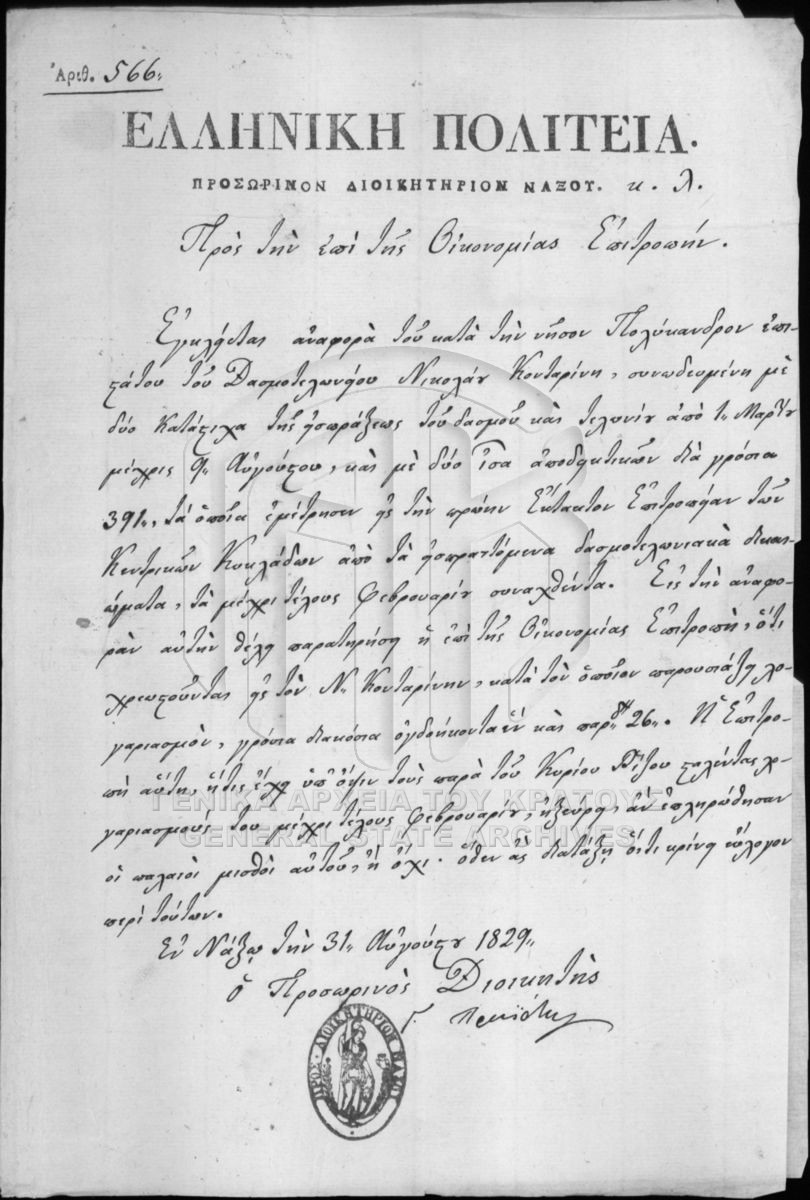 Ἀριθ. 566,,
ΕΛΛΗΝΙΚΗ ΠΟΛΙΤΕΙΑ.
ΠΡΟΣΩΡΙΝΟΝ ΔΙΟΙΚΗΤΗΡΙΟΝ ΝΑΞΟΥ. κ. λ.
Πρὸς τὴν ἐπὶ τῆς Οἰκονομίας Ἐπιτροπήν.
Ἐγκλείεται ἀναφορὰ τοῦ κατὰ τὴν νῆσον Πολύκανδρον ἐπι-
στάτου τοῦ Δασμοτελωνείου Νικολάου Κονταρίνη, συνωδευμένη μὲ
δύο κατάστιχα τῆς εἰσπράξεως τοῦ δασμοῦ καὶ τελωνίου ἀπὸ 1,, Μαρτίου
μέχρις 9,, Αὐγούστου, καὶ μὲ δύο ἴσα ἀποδεικτικῶν διὰ γρόσια
391,, τὰ ὁποῖα ἐμέτρησεν εἰς τὴν πρώην Ἔκτακτον Ἐπιτροπείαν τῶν
Κεντρικῶν Κυκλάδων ἀπὸ τὰ εἰσπραττόμενα δασμοτελωνιακὰ δικαι-
ώματα, τὰ μέχρι τέλους Φεβρουαρίου συναχθέντα. Εἰς τὴν ἀναφο-
ρὰν αὐτὴν θέλει παρατηρήσῃ ἡ ἐπὶ τῆς Οἰκονομίας Ἐπιτροπὴ, ὅτι
χρεωστοῦνται εἰς τὸν Ν,, Κονταρίνην, κατὰ τὸν ὁποῖον παρουσιάζει λο-
γαριασμὸν, γρόσια διακόσια ὀγδοήκοντα ἓν καὶ παρ. 26,,. Ἡ Ἐπιτρο-
πὴ αὕτη, ἥτις ἔχει ὑπ' ὄψιν τοὺς παρὰ τοῦ Κυρίου σταλέντας λο-
γαριασμοὺς του μέχρι τέλους Φεβρουαρίου, ἠξεύρει, ἂν ἐπληρώθησαν
οἱ παλαιοὶ μισθοὶ αὐτοῦ, ἢ ὄχι. ὅθεν ἂς διατάξῃ ὅ,τι κρίνει εὔλογον
περὶ τούτων.
Ἐν Νάξῳ τὴν 31,, Αὐγούστου 1829,,
ὁ Προσωρινὸς Διοικητὴς
Γ.
ΠΡΟΣ. ΔΙΟΙΚΗΤΗΡΙΟΝ ΝΑΞΟΥ
ΓΕΝΙΚΑ ΑΡΧΕΙΑ ΤΟΥ ΚΡΑΤΟΥΣ
GENERAL STATE ARCHIVES